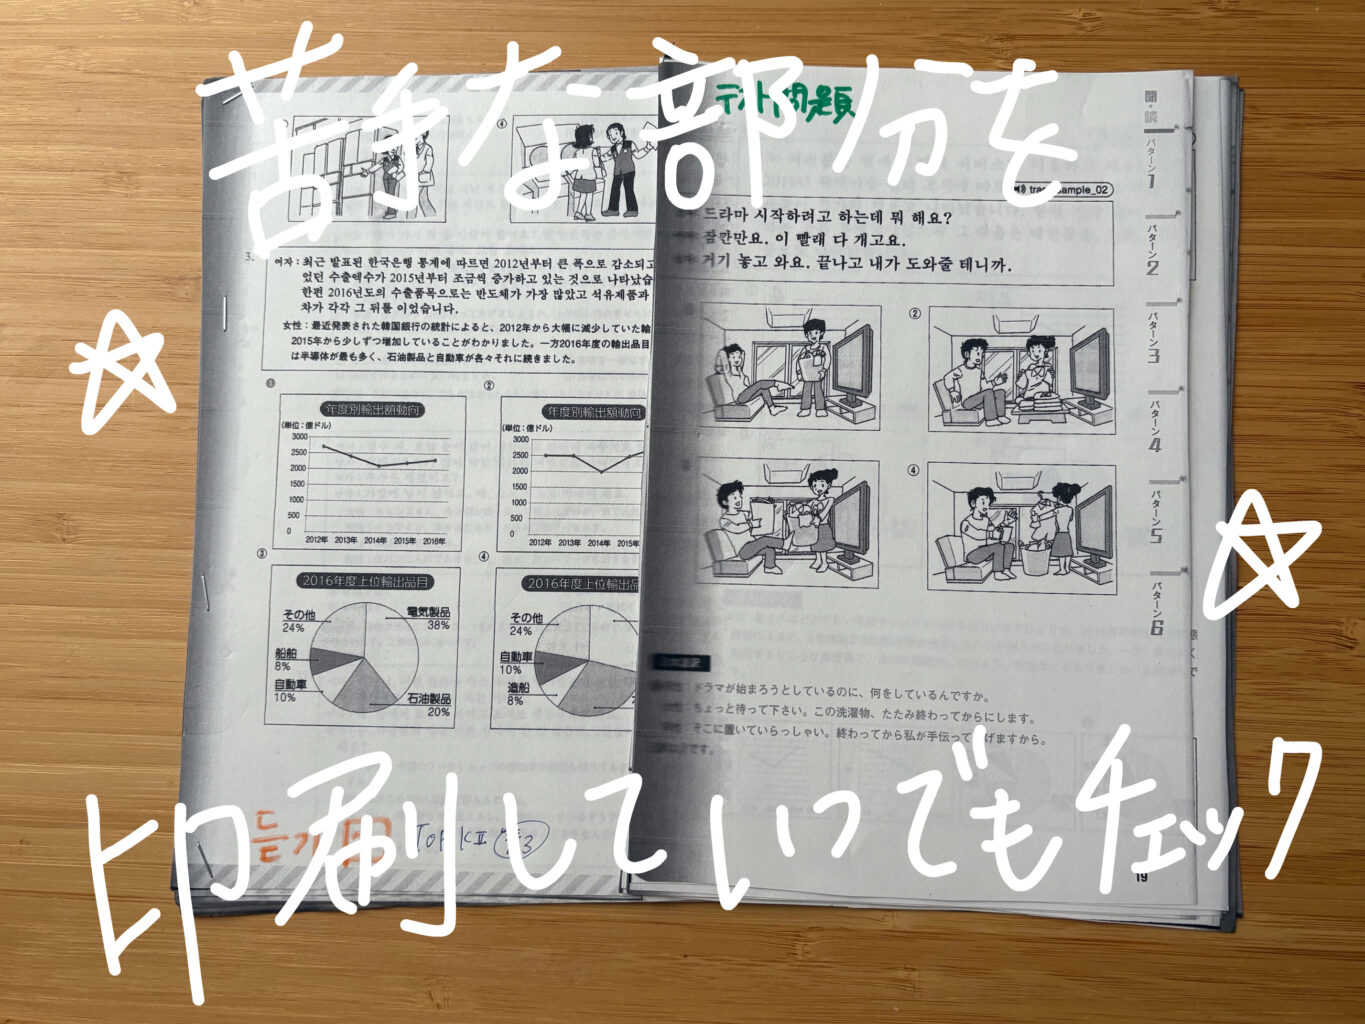 苦手な部分を
④
3.
여자 : 최근 발표된 한국은행 통계에 따르면 2012년부터 큰 폭으로 감소되고
었던 수출액수가 2015년부터 조금씩 증가하고 있는 것으로 나타났습
한편 2016년도의 수출품목으로는 반도체가 가장 많았고 석유제품과
차가 각각 그 뒤를 이었습니다.
女性：最近発表された韓国銀行の統計によると、2012年から大幅に減少していた輸
2015年から少しずつ増加していることがわかりました。一方2016年度の輸出品目
は半導体が最も多く、石油製品と自動車が各々それに続きました。
❶
年度別輸出額動向
(単位：億ドル)
3000
2500
2000
1500
1000
500
0
2012年 2013年 2014年 2015年 2016年
②
年度別輸出額動向
(単位：億ドル)
3000
2500
2000
1500
1000
500
0
2012年 2013年 2014年 2015年
③
2016年度上位輸出品目
その他
24%
電気製品
38%
船舶
8%
自動車
10%
石油製品
20%
④
2016年度上位輸出品
その他
24%
自動車
10%
造船
8%
듣기
TOPIK II
テスト問題
track sample_02
드라마 시작하려고 하는데 뭐 해요?
잠깐만요. 이 빨래 다 개고요.
거기 놓고 와요. 끝나고 내가 도와줄 테니까.
②
④
ドラマが始まろうとしているのに、何をしているんですか。
ちょっと待って下さい。この洗濯物、たたみ終わってからにします。
そこに置いていらっしゃい。終わってから私が手伝ってあげますから。
です。
聞・読
パターン1
パターン2
パターン3
パターン4
パターン5
パターン6
19
印刷していつでもチェック